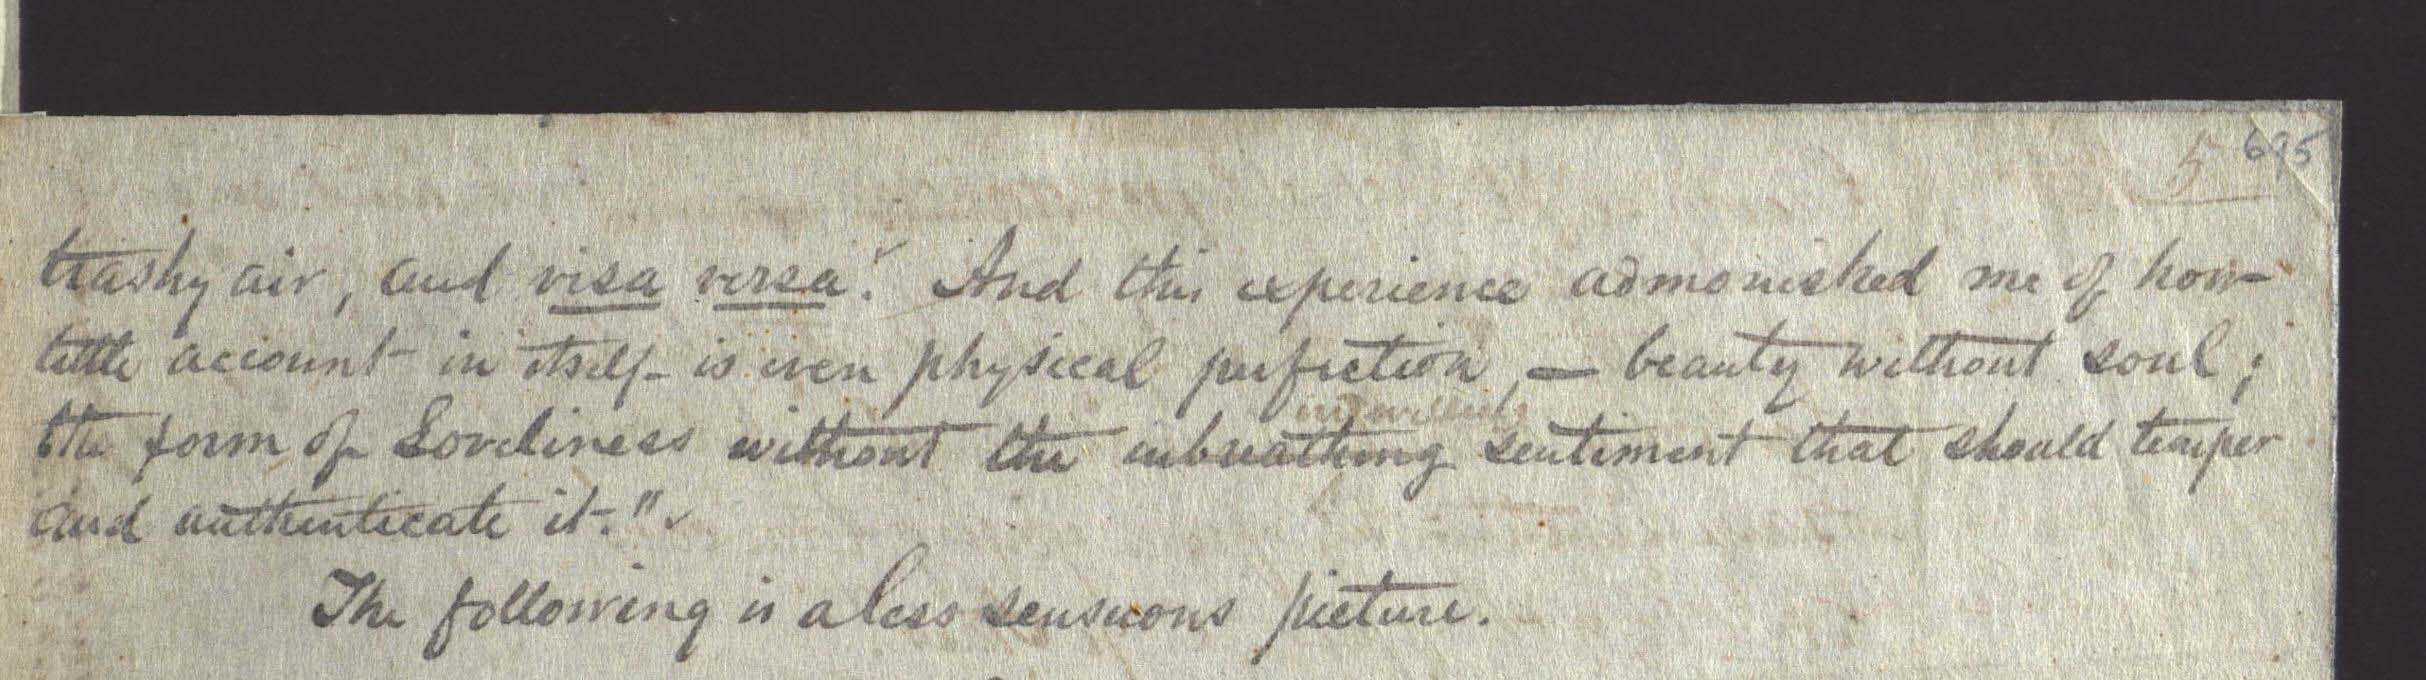 5 695
trashy air, and visa versa! And this experience admonished me of how
little account in itself is even physical perfection, — beauty without soul;
the form of Loveliness without the inbreathing sentiment that should temper
and authenticate it."
The following is a less sensuous picture.